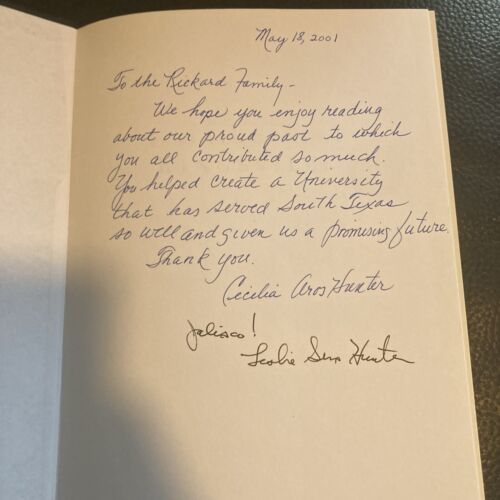 May 18, 2001
To the Rickard Family -
We hope you enjoy reading
about our proud past to which
you all contributed so much.
You helped create a University
that has served South Texas
so well and given us a promising future.
Thank you.
Cecilia Aros Hunter
Jalisco!
Leslie Hunter